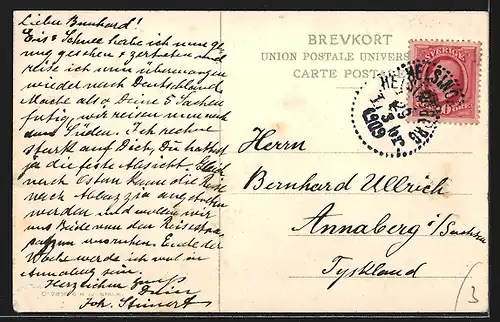 Lieber Bernhard!
Eis & Schnee habe ich nun ge-
nug gesehen &
reise ich nun übermorgen
wieder nach Deutschland.
Mache also Deine 5 Sachen
fertig, wir reisen nun nach
dem Süden. Ich rechne
stark auf Dich, Du hattest
ja die feste Absicht. Gleich
nach Ostern kann die Reise
nach Abbazia angetreten
werden und wollen wir
uns Beide von den Reisestra-
pazen ausruhen. Ende der
Woche werde ich wol in
Annaberg sein.
Herzlichen Gruß
Dein
Joh. Steinert
BREVKORT
UNION POSTALE UNIVERS
CARTE POST
SVERIGE
HELSINGBORG
29 3
1909
Herrn
Bernhard Ullrich
Annaberg i/Sachsen
Tyskland
3